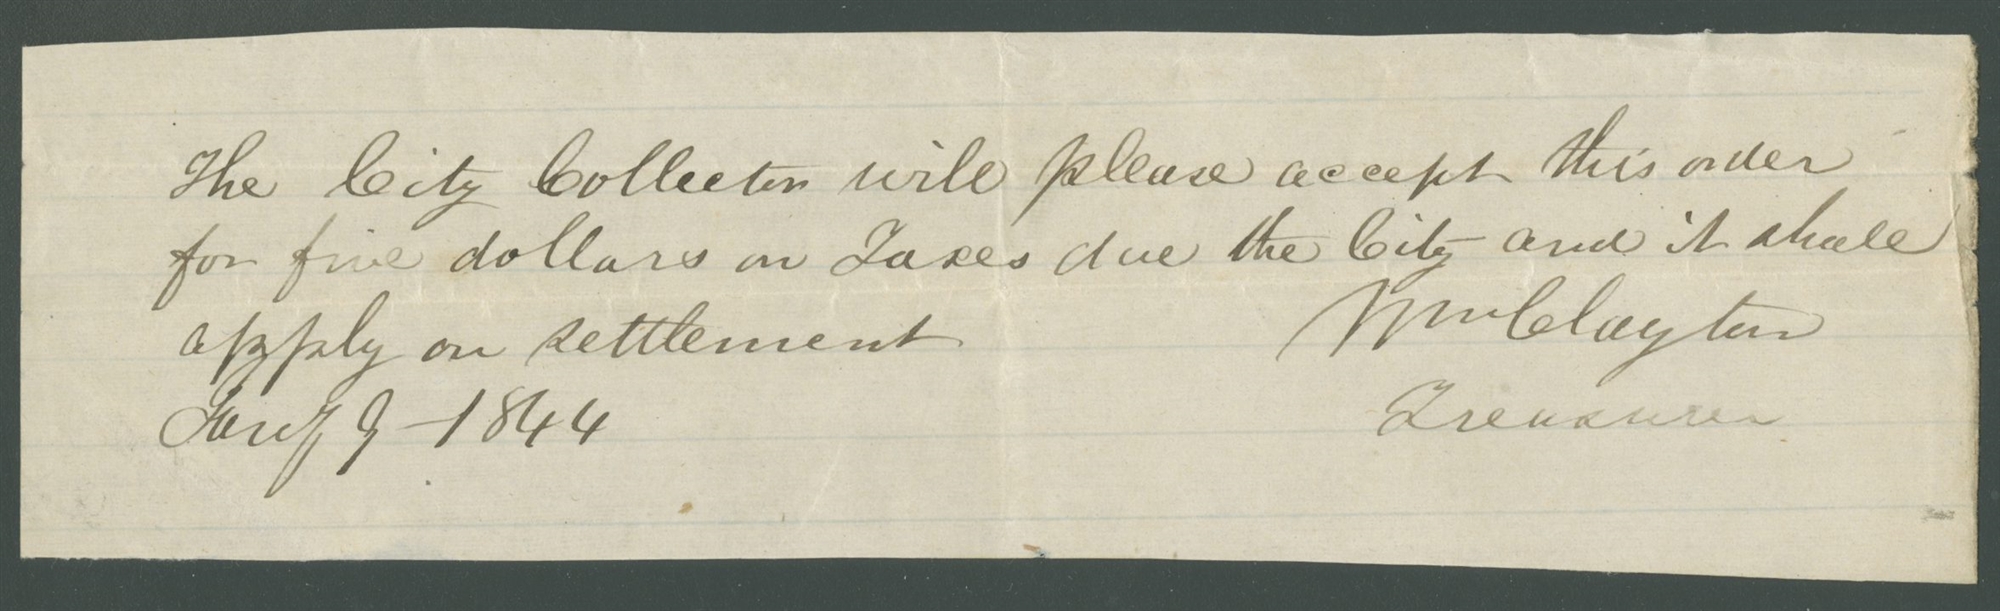 The City Collector will please accept this order
for five dollars on Taxes due the City and it shall
apply on settlement
Wm Clayton
Jany 9 - 1844
Treasurer